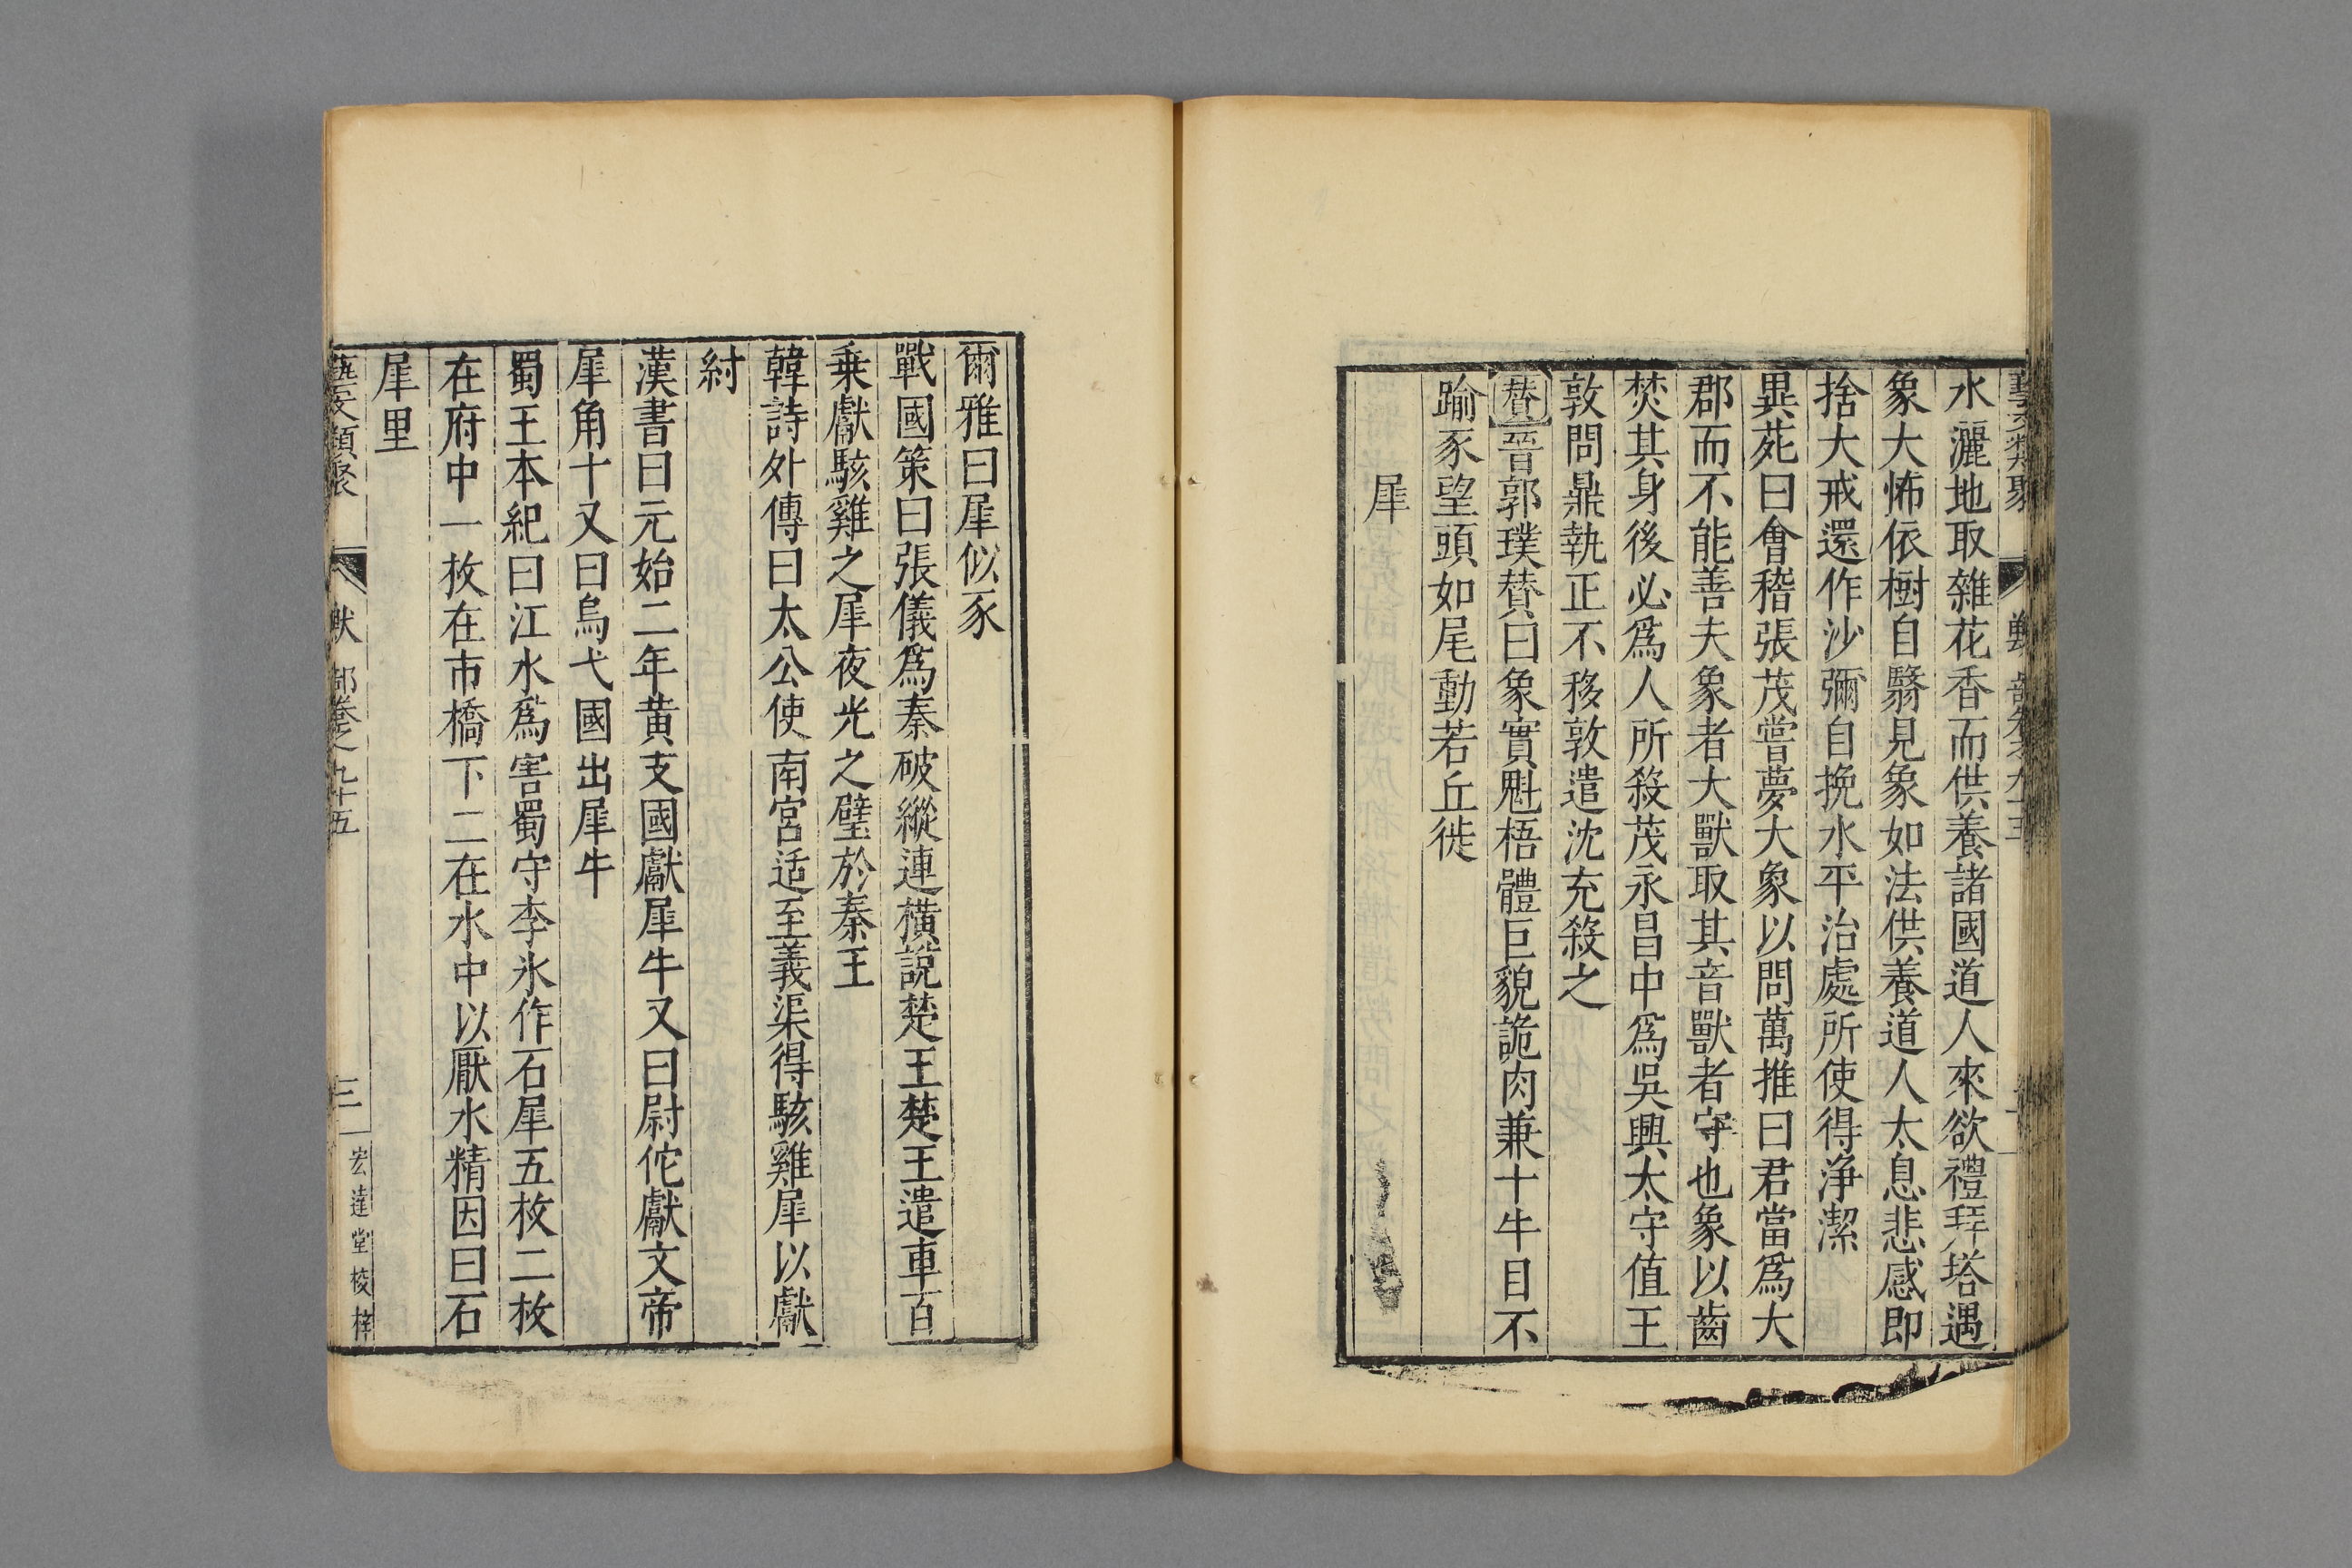 水灑地取雜花香而供養諸國道人來欲禮拜塔遇
象大怖依樹自翳見象如法供養道人太息悲感即
捨大戒還作沙彌自挽水平治處所使得淨潔
異苑曰會稽張茂嘗夢大象以問萬推曰君當爲大
郡而不能善夫象者大獸取其音獸者守也象以齒
焚其身後必爲人所殺茂永昌中爲吳興太守值王
敦問鼎執正不移敦遣沈充殺之
贊晉郭璞贊曰象實魁梧體巨貌詭肉兼十牛目不
踰豕望頭如尾動若丘徙
犀
爾雅曰犀似豕
戰國策曰張儀爲秦破縱連橫說楚王楚王遣車百
乗獻駭雞之犀夜光之璧於秦王
韓詩外傳曰太公使南宮适至義渠得駭雞犀以獻
紂
漢書曰元始二年黄支國獻犀牛又曰尉佗獻文帝
犀角十又曰烏弋國出犀牛
蜀王本紀曰江水爲害蜀守李氷作石犀五枚二枚
在府中一枚在市橋下二在水中以厭水精因曰石
犀里
藝文類聚 獸部卷之九十五 三 宏達堂校梓